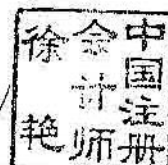 中国注册
会计师
徐艳